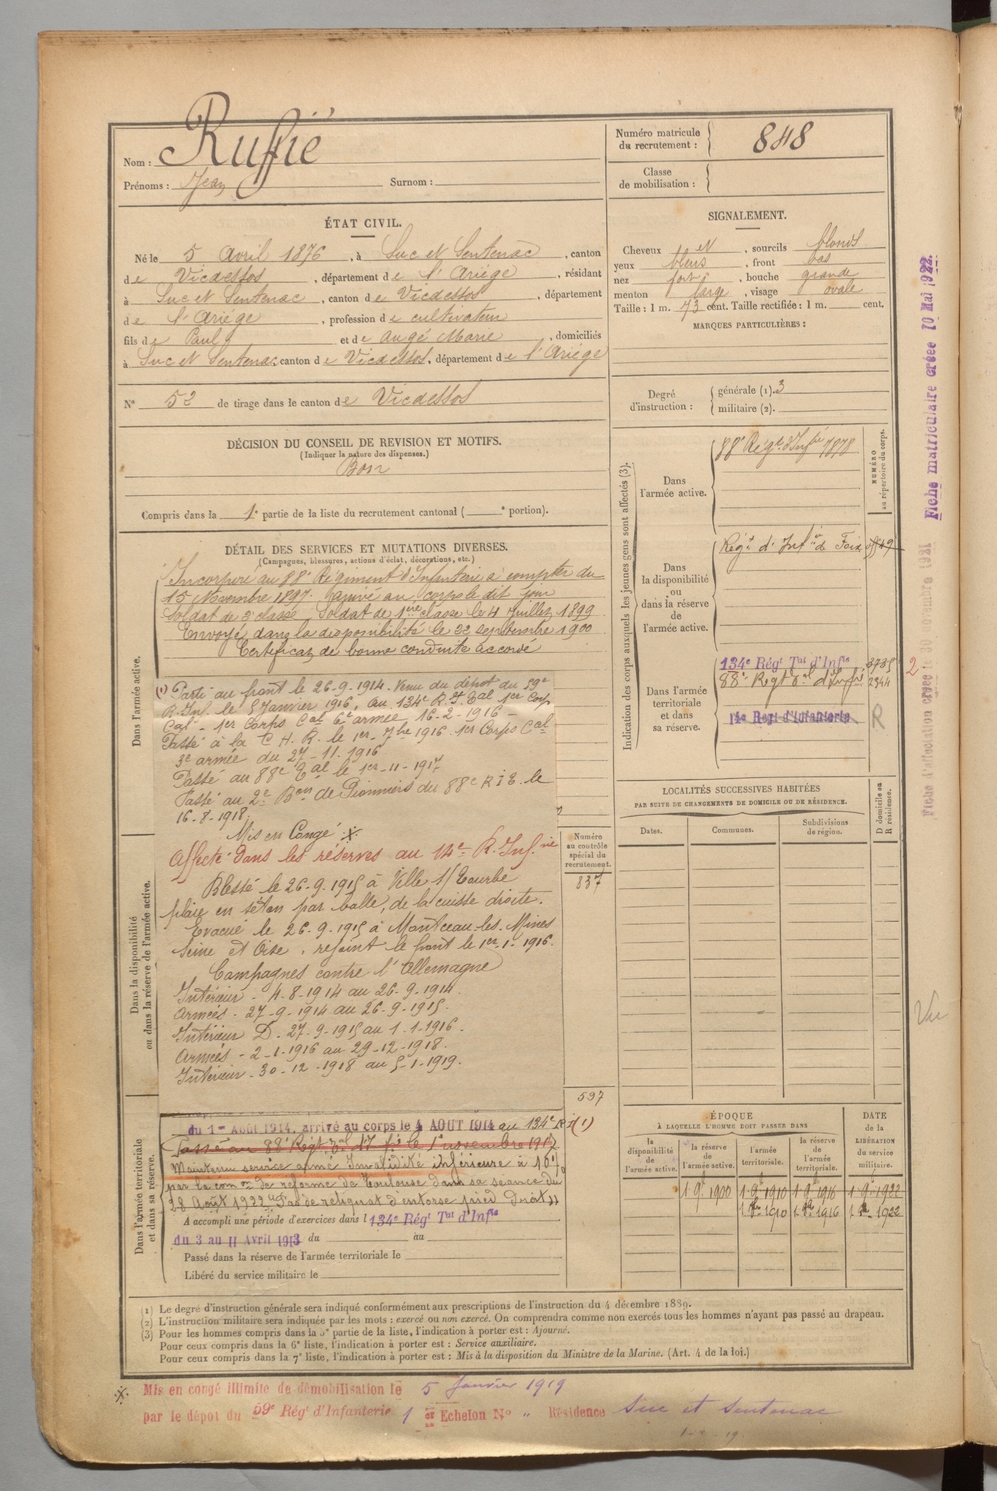 Nom : Ruffié
Prénoms : Jean Surnom :
Numéro matricule du recrutement : 848
Classe de mobilisation :
ÉTAT CIVIL.
Né le 5 Avril 1876, à Suc et Sentenac, canton
de Vicdessos, département de l'Ariège, résidant
à Suc et Sentenac, canton de Vicdessos, département
de l'Ariège, profession de cultivateur
fils de Paul et de Augé Marie, domiciliés
à Suc et Sentenac, canton de Vicdessos, département de l'Ariège
N° 52 de tirage dans le canton de Vicdessos
DÉCISION DU CONSEIL DE REVISION ET MOTIFS.
(Indiquer la nature des dispenses.)
Bon
Compris dans la 1e partie de la liste du recrutement cantonal ( e portion).
SIGNALEMENT.
Cheveux et, sourcils blonds
yeux bleus, front bas
nez fort, bouche grande
menton large, visage ovale
Taille : 1 m. 73 cent. Taille rectifiée : 1 m. cent.
MARQUES PARTICULIÈRES :
Degré d'instruction : générale (1). 3
militaire (2).
Indication des corps auxquels les jeunes gens sont affectés (3).
NUMÉRO au répertoire du corps.
Dans l'armée active. 88e Régt d'Infie 7878
Dans la disponibilité ou dans la réserve de l'armée active. Régt d'Inf de Foix
Dans l'armée territoriale et dans sa réserve. 134e Régt Tal d'Infie
88e Regt tal d'Infie 2344
14e Regt d'Infanterie
R
2
DÉTAIL DES SERVICES ET MUTATIONS DIVERSES.
(Campagnes, blessures, actions d'éclat, décorations, etc.)
Dans l'armée active.
Incorporé au 88e Régiment d'Infanterie à compter du
15 Novembre 1897. Arrivé au corps le dit jour
Soldat de 2e classe. Soldat de 1ère classe le 4 Juillet 1899
Envoyé dans la disponibilité le 22 septembre 1900
Certificat de bonne conduite accordé
(1) Parti au front le 26-9-1914. Venu du dépôt du 59e
R. Inf. le 8 Janvier 1916, au 134e R.I. Tal 1er Corps
Cal - 1er Corps Cal 6e armée 16-2-1916 -
Passé à la C.H.R. le 1er 7bre 1916 1er Corps Cal
3e armée du 27-11-1916
Passé au 88e Tal le 1er-11-1917
Passé au 2e Bon de Pionniers du 88e R I T. le
16-8-1918.
Mis en Congé
Affecté dans les réserves au 14e R. Infie
Blessé le 26-9-1915 à Ville s/ Tourbe
plaie en séton par balle, de la cuisse droite.
Evacué le 26-9-1915 à Montceau-les-Mines
Seine et Oise, rejoint le front le 1er-1-1916.
Campagnes contre l'Allemagne
Intérieur - 4-8-1914 au 26-9-1914.
Armées - 27-9-1914 au 26-9-1915.
Intérieur D - 27-9-1915 au 1-1-1916.
Armées - 2-1-1916 au 29-12-1918.
Intérieur - 30-12-1918 au 5-1-1919.
Dans la disponibilité ou dans la réserve de l'armée active.
Numéro au contrôle spécial du recrutement.
837
597
LOCALITÉS SUCCESSIVES HABITÉES
PAR SUITE DE CHANGEMENTS DE DOMICILE OU DE RÉSIDENCE.
Dates. Communes. Subdivisions de région. D domicile ou R résidence.
Dans l'armée territoriale et dans sa réserve.
du 1er Août 1914, arrivé au corps le 4 AOUT 1914 au 134e RI (1)
Passé au 88e Régt tal d'Infie le 1er novembre 1917
Maintenu service armé Invalidité inférieure à 10%
par la com on de réforme de Toulouse dans sa séance du
28 Août 1922 Pas de reliquat d'entorse pied droit
A accompli une période d'exercices dans l 134e Régt Tal d'Infie
du 3 au 11 Avril 1913 du au
Passé dans la réserve de l'armée territoriale le
Libéré du service militaire le
ÉPOQUE
À LAQUELLE L'HOMME DOIT PASSER DANS
la disponibilité de l'armée active. la réserve de l'armée active. l'armée territoriale. la réserve de l'armée territoriale.
DATE de la LIBÉRATION du service militaire.
1 9e 1900 1 9e 1910 1 9e 1916 1 9e 1922
1910 1916 1922
(1) Le degré d'instruction générale sera indiqué conformément aux prescriptions de l'instruction du 4 décembre 1889.
(2) L'instruction militaire sera indiquée par les mots : exercé ou non exercé. On comprendra comme non exercés tous les hommes n'ayant pas passé au drapeau.
(3) Pour les hommes compris dans la 5e partie de la liste, l'indication à porter est : Ajourné.
Pour ceux compris dans la 6e liste, l'indication à porter est : Service auxiliaire.
Pour ceux compris dans la 7e liste, l'indication à porter est : Mis à la disposition du Ministre de la Marine. (Art. 4 de la loi.)
Mis en congé illimité de démobilisation le 5 Janvier 1919
par le dépot du 59e Régt d'Infanterie 1 er Echelon N° „ Résidence Suc et Sentenac
Fiche matriculaire créée 10 Mai 1922.
Fiche d'affectation créée le 30 Novembre 1921
Vu